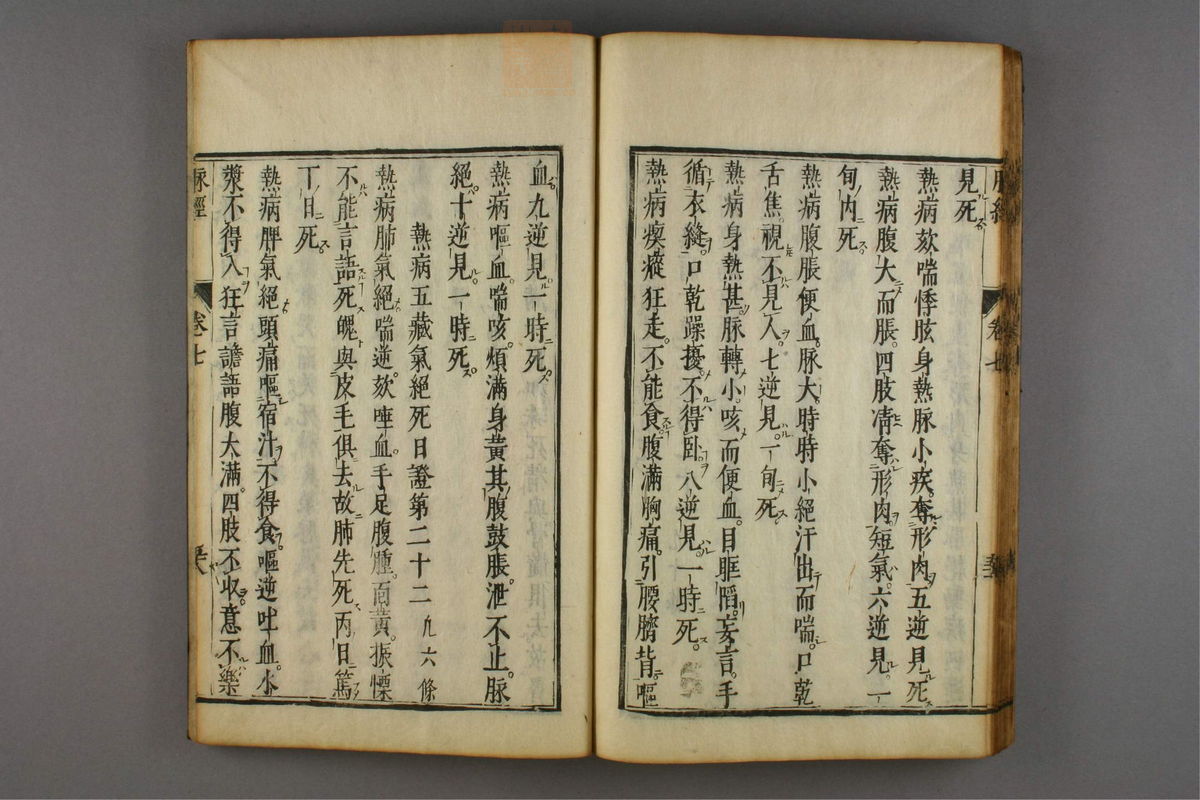 脉經　卷七
見死
熱病欬喘悸眩身熱脉小疾奪形肉五逆見死
熱病腹大而脹四肢凊奪形肉短氣六逆見一
旬内死
熱病腹脹便血脉大時時小絕汗出而喘口乾
舌焦視不見人七逆見一旬死
熱病身熱甚脉轉小咳而便血目眶䧟妄言手
循衣縫口乾躁擾不得卧八逆見一時死
熱病瘈瘲狂走不能食腹滿胸痛引腰臍背嘔
血九逆見一時死
熱病嘔血喘咳煩滿身黃其腹鼓脹泄不止脉
絕十逆見一時死
熱病五藏氣絕死日證第二十二　凡六條
熱病肺氣絕喘逆欬唾血手足腹腫面黃振慄
不能言語死魄與皮毛俱去故肺先死丙日篤
丁日死
熱病脾氣絕頭痛嘔宿汁不得食嘔逆吐血水
漿不得入狂言譫語腹大滿四肢不收意不樂
脉經　卷七